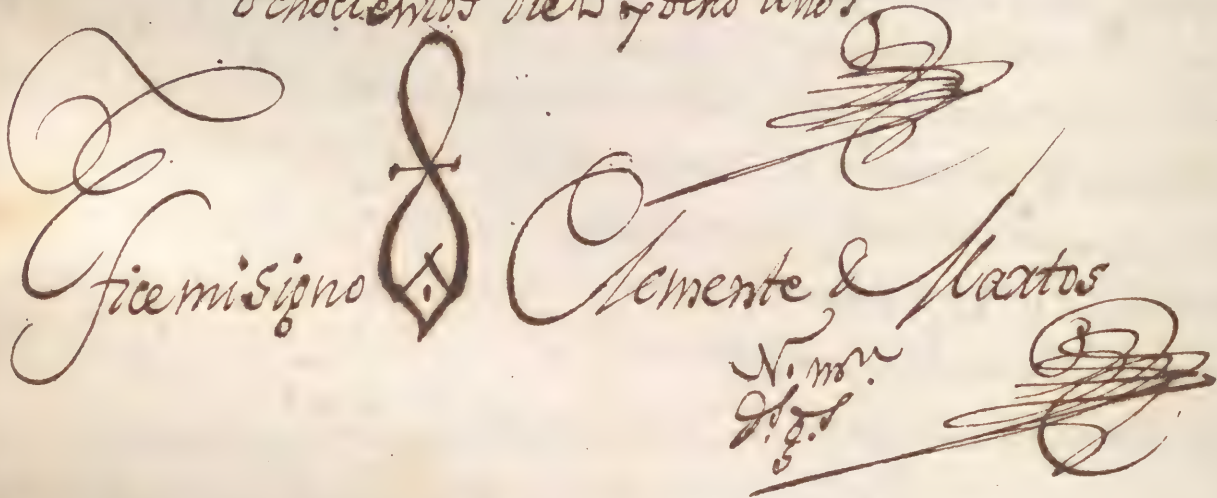 ochocientos diez y ocho años
E fice mi signo Clemente de Martos
N. mr.